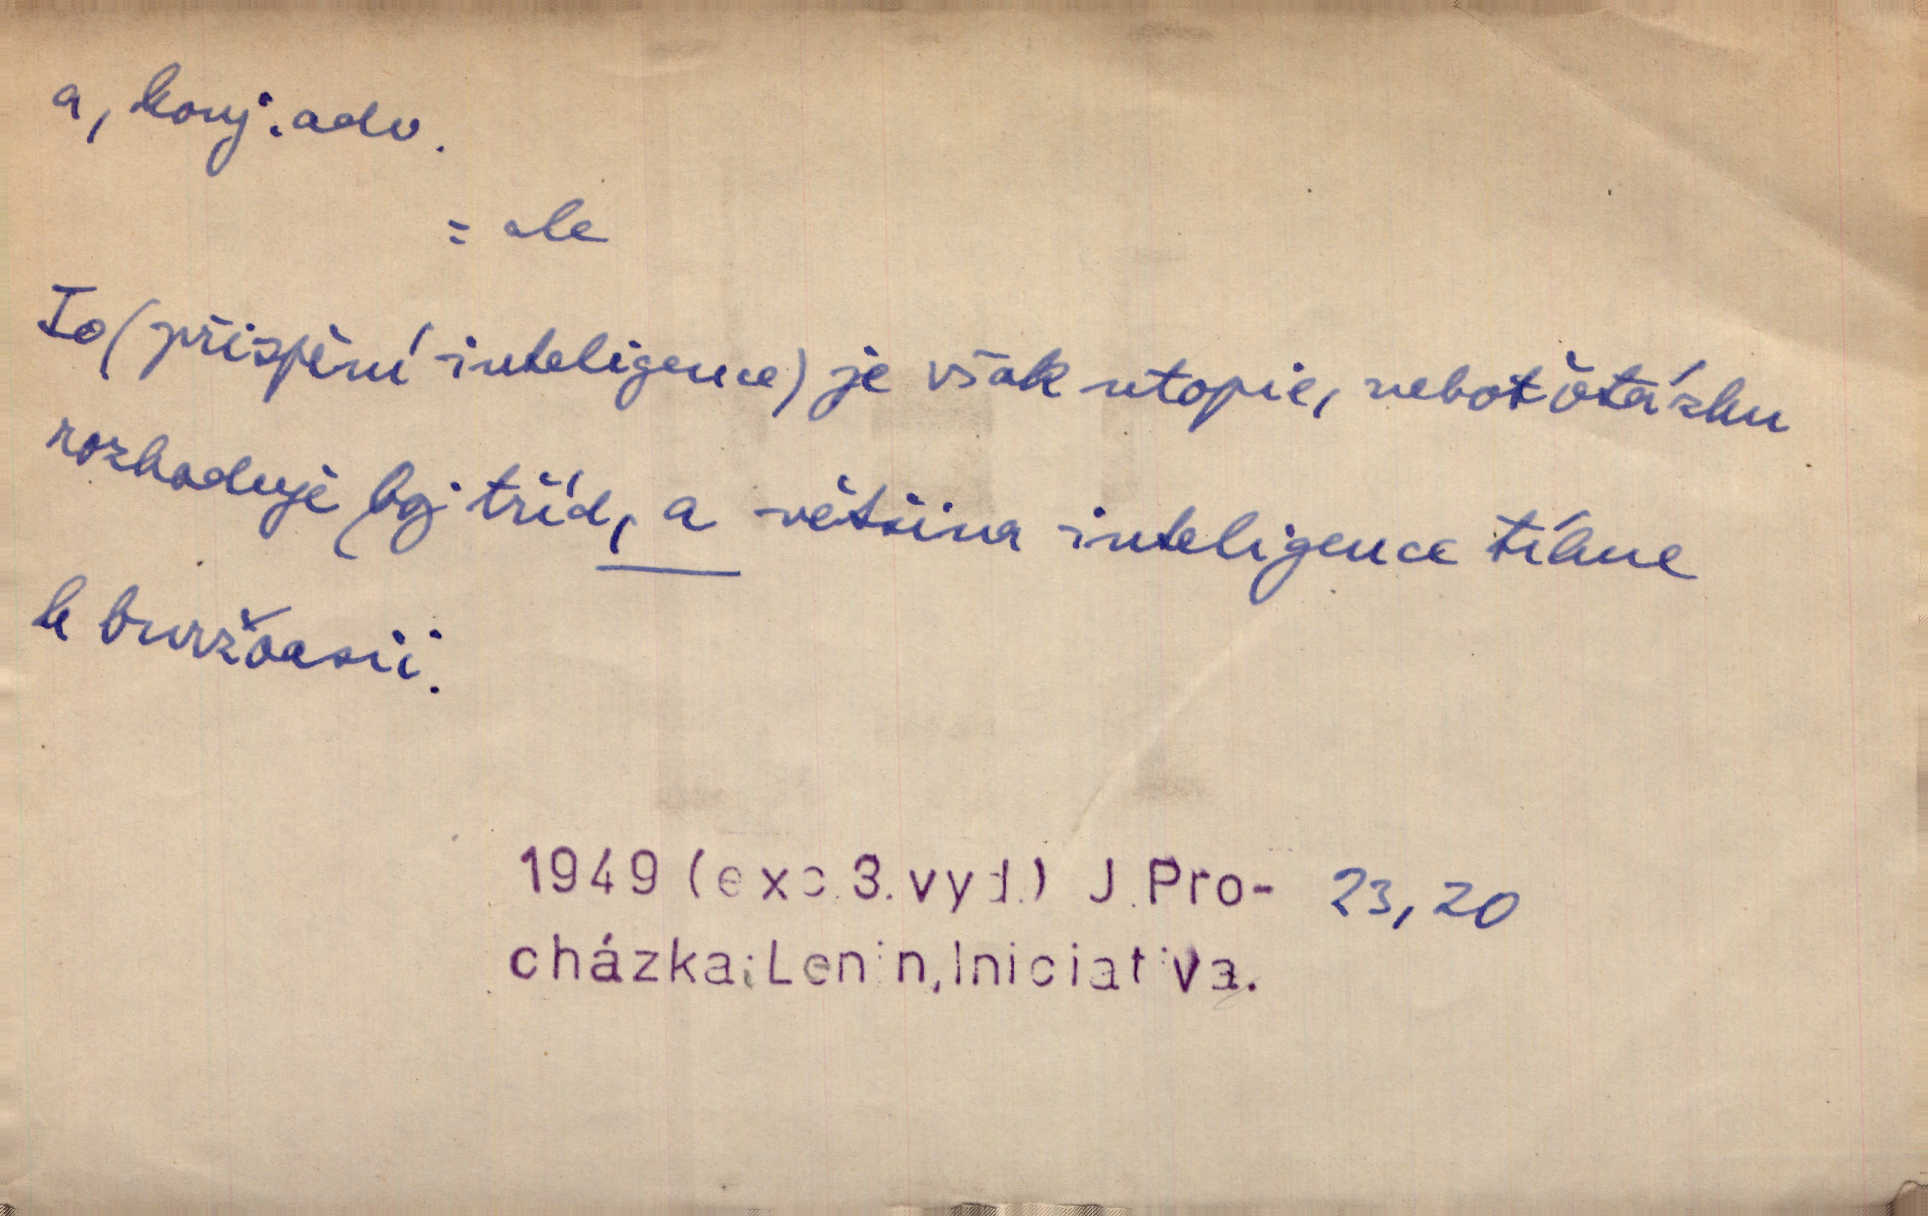 a, konj. adv.
= ale
To (přispění inteligence) je však utopie, neboť otázku
rozhoduje boj tříd, a většina inteligence tíhne
k buržoasii.
1949 (exc. 3. vyd.) J. Pro- 23, 20
cházka: Lenin, Iniciativa.